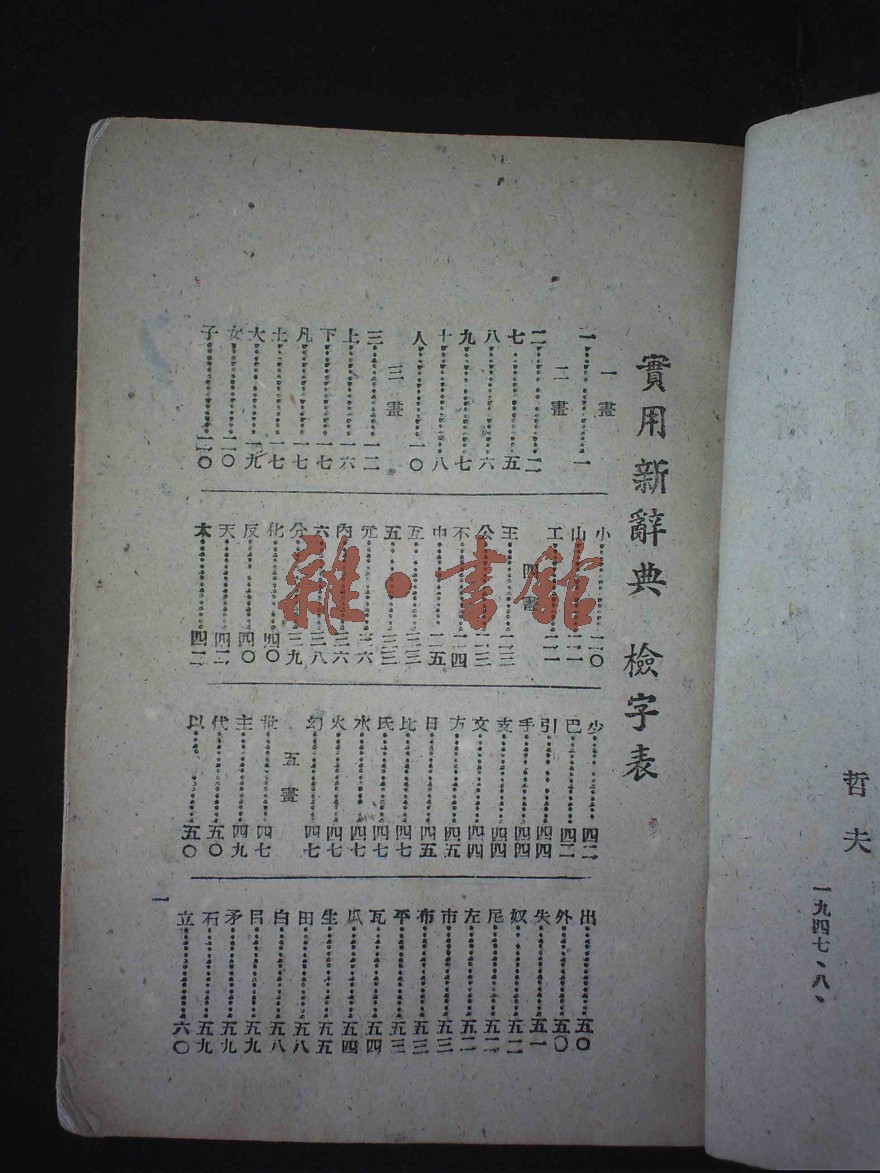 哲夫
一九四七、八、
實用新辭典 檢字表
一畫
一……一
二畫
二……二
七……五
八……六
九……七
十……八
人……一〇
三畫
三……一二
上……一六
下……一七
凡……一七
土……一七
大……一九
女……二〇
子……二〇
小……二〇
山……二一
工……二一
四畫
王……二三
公……二三
不……二四
中……二五
互……三三
五……三三
元……三六
內……三六
六……三八
分……三九
化……四〇
反……四〇
天……四二
太……四二
少……四二
巴……四二
引……四四
手……四四
支……四四
文……四四
方……四五
日……四五
比……四七
氏……四七
水……四七
火……四七
幻……四七
五畫
世……四七
主……四九
代……五〇
以……五〇
出……五〇
外……五〇
失……五一
奴……五二
尼……五二
左……五二
市……五三
布……五三
平……五三
瓦……五四
瓜……五四
生……五五
田……五八
白……五八
目……五九
矛……五九
石……五九
立……六〇
一
雜·書館